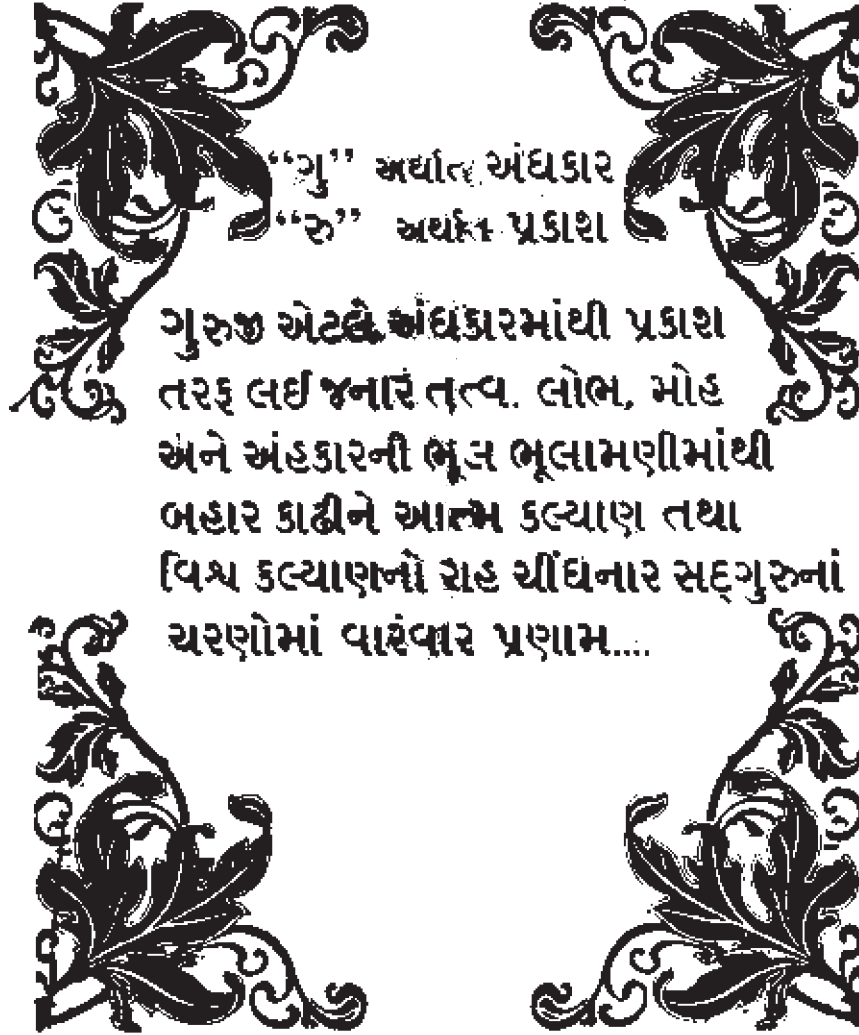 “ગુ” અર્થાત્ અંધકાર
“રુ” અર્થાત પ્રકાશ
ગુરુજી એટલે અંધકારમાંથી પ્રકાશ
તરફ લઈ જનારં તત્વ. લોભ, મોહ
અને અંહકારની ભૂલ ભૂલામણીમાંથી
બહાર કાઢીને આત્મ કલ્યાણ તથા
વિશ્વ કલ્યાણનો રાહ ચીંધનાર સદ્ગુરુનાં
ચરણોમાં વારંવાર પ્રણામ....